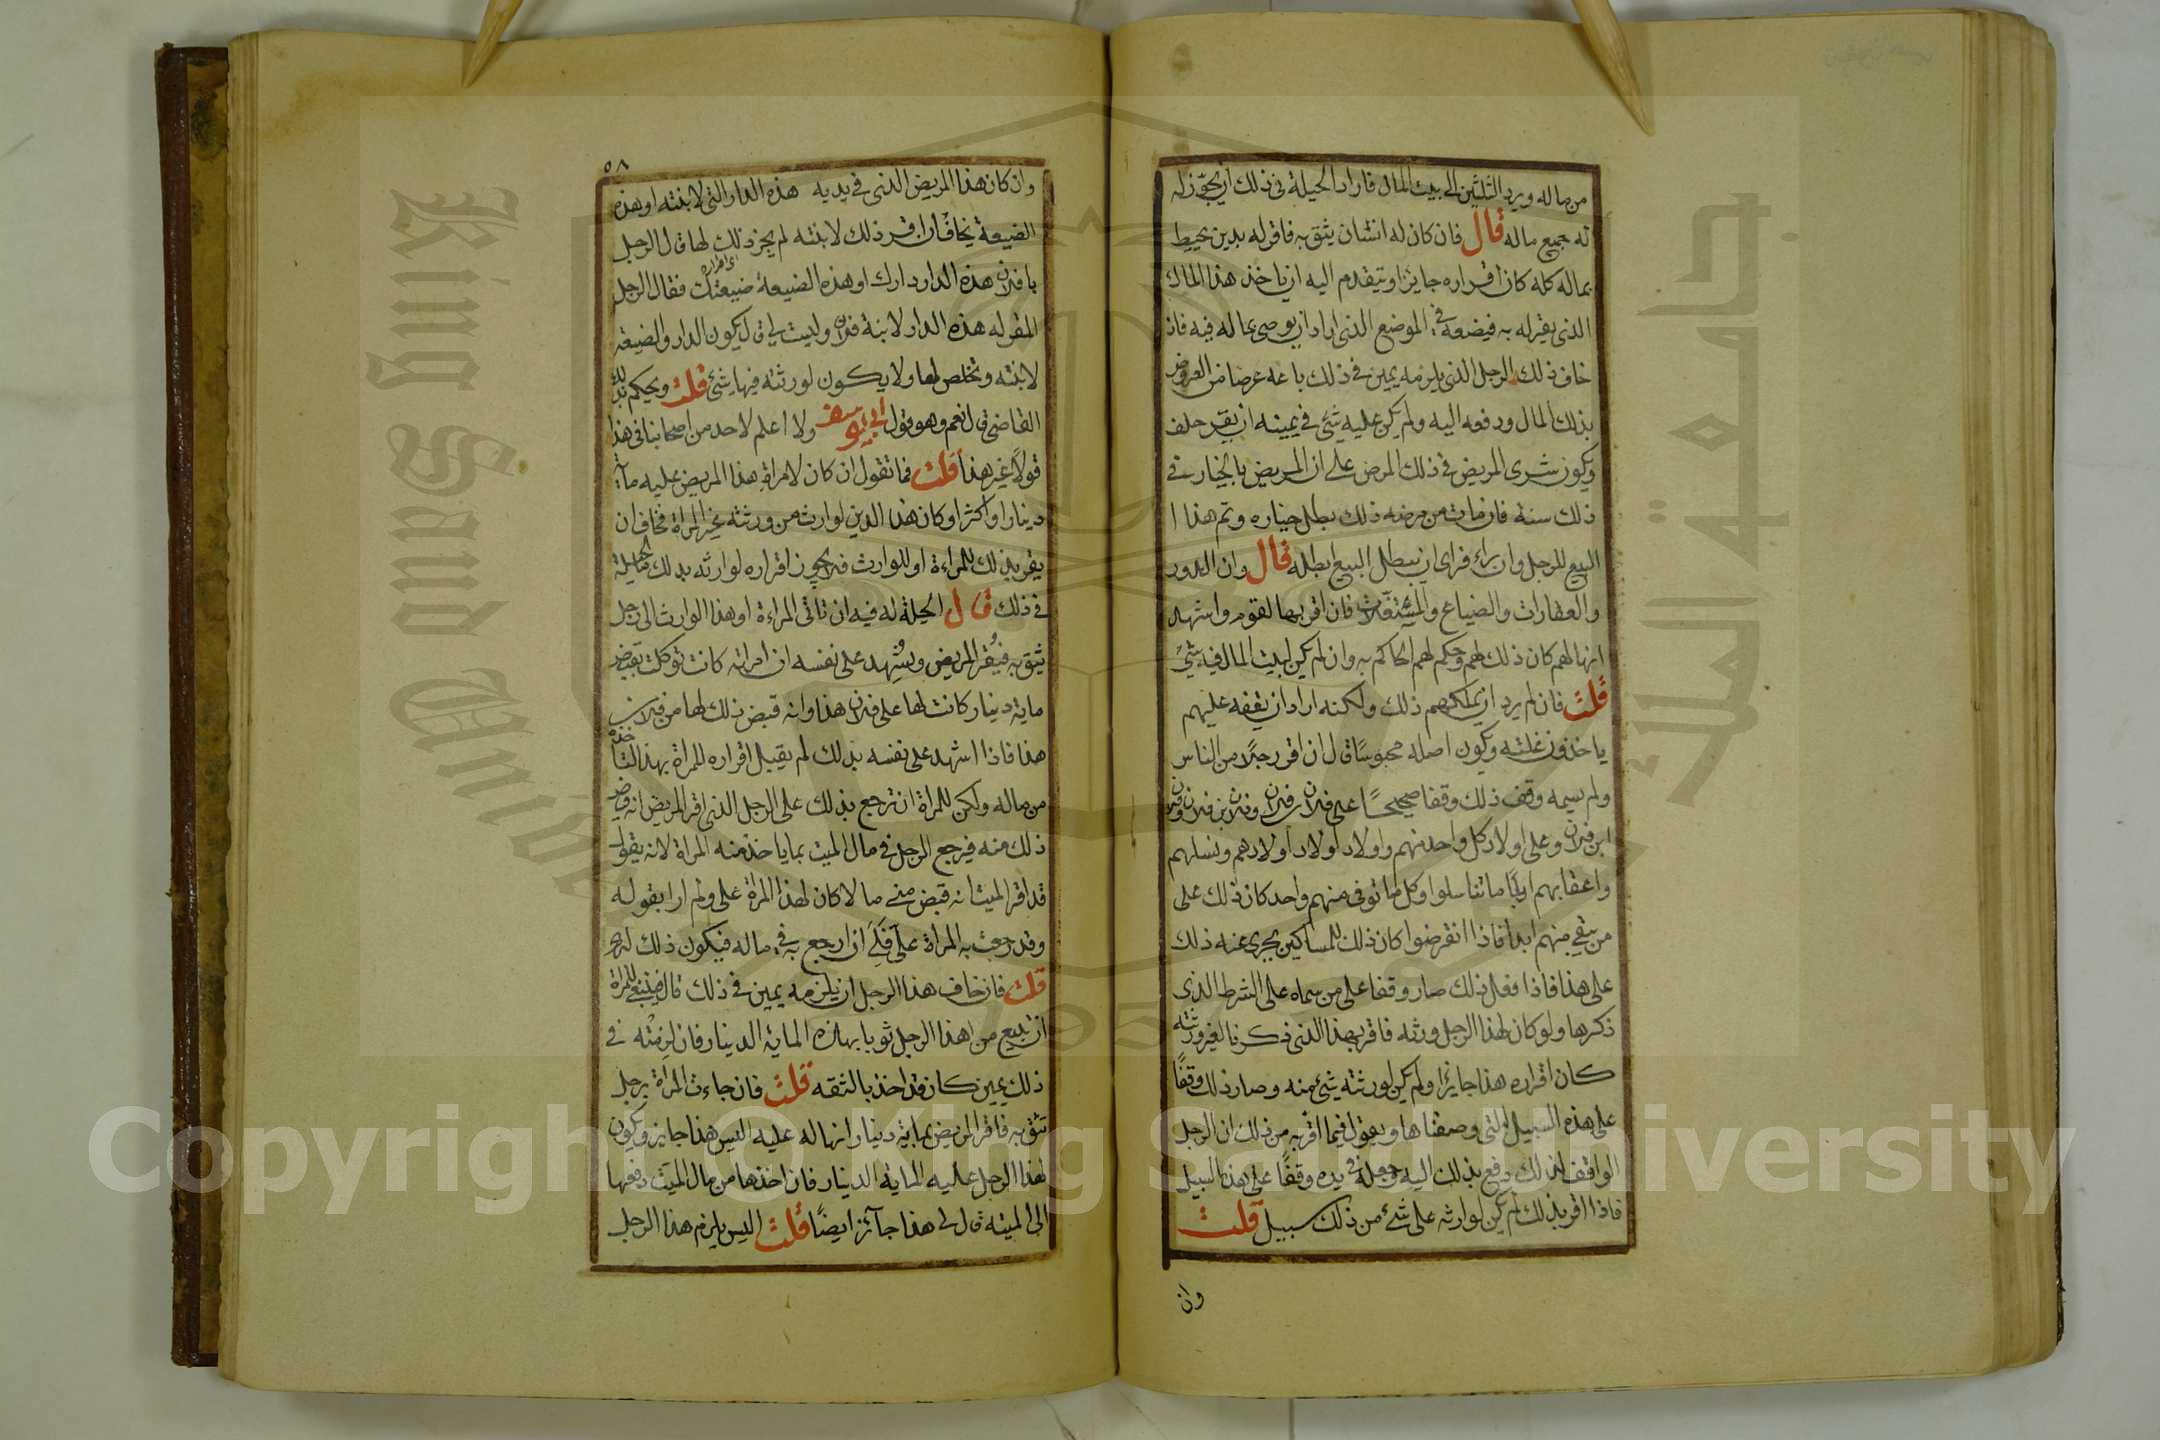 من ماله ويرد الثلثين الى بيت المال فاراد الحيلة فى ذلك ان يجوّز له
له جميع ماله قال فان كان له انسان يثق به فاقر له بدين يحيط
بماله كله كان اقراره جايزا ويتقدم اليه ان ياخذ هذا المال
الذى يقر له به فيضعه فى الموضع الذى اراد ان يوصى بماله فيه فان
خاف ذلك الرجل الذى يلزمه يمين فى ذلك باعه عرضا من العروض
بذلك المال ودفعه اليه ولم يكن عليه شئ فى يمينه ان حلف
ويكون شرى المريض فى ذلك المرض على ان المريض بالخيار فى
ذلك سنة فان مات من مرضه ذلك بطل خياره وتم هذا ا
البيع للرجل وان براء فراى ان يبطل البيع ابطله قال وان الدور
والعقارات والضياع والمستغلات فان اقر بها لقوم واشهد
انها لهم كان ذلك لهم وحكم لهم الحاكم به وان لم يكن لبيت المال فيه شئ
قلت فان لم يرد ان يملكهم ذلك ولكنه اراد ان يقفه عليهم
ياخذون غلته ويكون اصله محبوسا قال ان اقر رجلا من الناس
ولم يسمه وقف ذلك وقفا صحيحا على فلان بن فلان وفلان بن فلان وفلان
ابن فلان وعلى اولاد كل واحد منهم واولاد اولاد اولادهم ونسلهم
واعقابهم ابدا ما تناسلوا وكل ما توفى منهم واحد كان ذلك على
من بقى منهم ابدا فاذا انقرضوا كان ذلك للمساكين يجرى عنه ذلك
على هذا فاذا فعل ذلك صار وقفا على من سماه على الشرط الذى
ذكرها ولو كان لهذا الرجل ورثه فاقر بهذا الذى ذكرنا لغير ورثته
كان اقراره هذا جايزا ولم يكن لورثته شئ منه وصار ذلك وقفًا
على هذه السبيل التى وصفناها ويقول فيما اقر به من ذلك ان الرجل
الواقف لذلك دفع بذلك اليه وجعله فى يده وقفًا على هذا السبيل
فاذا اقر بذلك لم يكن لوارثه على شئ من ذلك سبيل قلت
وان
٥٨
وان كان هذا المريض الذى فى يديه هذه الدار التى لابنته او هذه
الضيعة يخاف ان اقر ذلك لابنته لم يجز ذلك لها قال الرجل
يا فلان هذه الدار دارك او هذه الضيعة ضيعتك فقال الرجل
المقر له هذه الدار لابنة فلان وليست لى قال يكون الدار والضيعة
لابنته وتخلص لها ولا يكون لورثته فيها شئ قلت ويحكم بذلك
القاضى قال نعم وهو قول ابى يوسف ولا اعلم لاحد من اصحابنا فى هذا
قولا غير هذا قلت فما تقول ان كان لامراة هذا المريض عليه مائة
دينار او اكثر او كان هذا الدين لوارث من ورثته غير المراة فخاف ان
يقر بذلك للمراءة او للوارث فلا يجوز اقراره لوارثه بذلك فما الحيلة
فى ذلك قال الحيلة له فيه ان تاتى المراءة او هذا الوارث الى رجل
يثق به فيُقر المريض ويُشهد على نفسه ان امراته كانت توكلت بقبض
ماية دينار كانت لها على فلان هذا وانه قبض ذلك لها من فلان
هذا فاذا اشهد على نفسه بذلك لم يقبل اقراره للمراة بهذا لتاخذه
من ماله ولكن للمراة ان ترجع بذلك على الرجل الذى اقر المريض انه قبض
ذلك منه فيرجع الرجل فى مال الميت بما ياخذ منه المراة لانه يقول
قد اقر الميت انه قبض منى مالا كان لهذا المراة على ولم ابرا بقوله
وقد رجعت به المراة علىّ فلى ان ارجع به فى ماله فيكون ذلك له
قلت فان خاف هذا الرجل ان يلزمه يمين فى ذلك قال فينبغى للمراة
ان تبيع من هذا الرجل ثوبا بهذه الماية الدينار فان لزمته فى
ذلك يمين كان قد اخذ بالثقه قلت فان جاءت المراة برجل
تثق به فاقر المريض بماية دينار وانها له عليه اليس هذا جايز ويكون
لهذا الرجل عليه الماية الدينار فان اخذها من مال الميت دفعها
الى الميته قال لى هذا جآئز ايضًا قلت اليس يلزم هذا الرجل